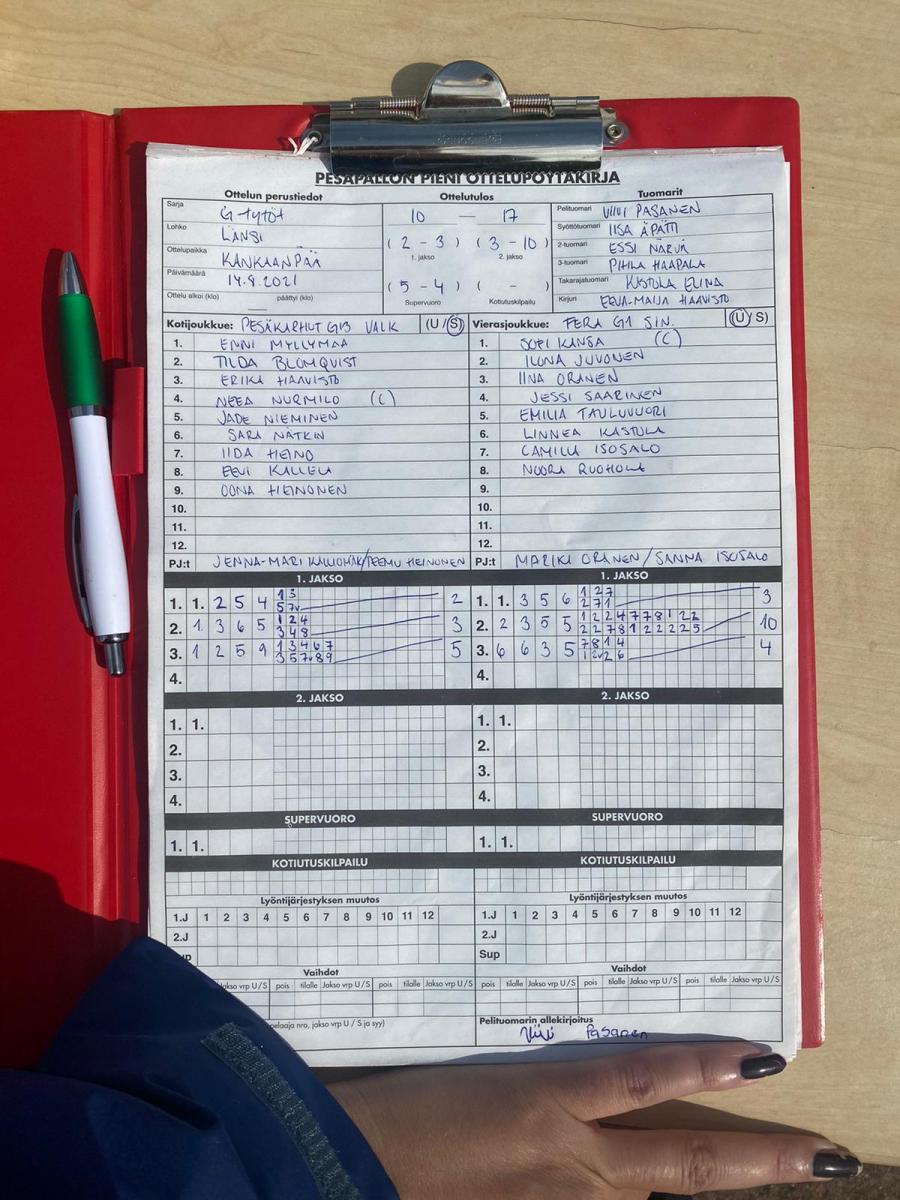 PESÄPALLON PIENI OTTELUPÖYTÄKIRJA
Ottelun perustiedot Ottelutulos Tuomarit
Sarja G-tytöt
Lohko LÄNSI
Ottelupaikka KANKAANPÄÄ
Päivämäärä 14.9.2021
Ottelu alkoi (klo) päättyi (klo)
10 — 17
( 2 - 3 ) ( 3 - 10 )
1. jakso 2. jakso
( 5 - 4 ) ( - )
Supervuoro Kotiutuskilpailu
Pelituomari VIIVI PASANEN
Syöttötuomari IISA ÄPÄTTI
2-tuomari ESSI NÄRVÄ
3-tuomari PIHLA HAAPALA
Takarajatuomari KASTULA ELINA
Kirjuri EEVA-MAIJA HAAVISTO
Kotijoukkue: PESÄKARHUT G13 VALK (U / S)
1. ENNI MYLLYMAA
2. TILDA BLOMQVIST
3. ERIKA HAAVISTO
4. NEEA NURMILO (C)
5. JADE NIEMINEN
6. SARA NÄTKIN
7. IIDA HEINO
8. EEVI KALLELA
9. OONA HEINONEN
10.
11.
12.
PJ:t JENNA-MARI /TEEMU HEINONEN
Vierasjoukkue: FERA G1 SIN. (U / S)
1. SOFI KANSA (C)
2. ILONA JUVONEN
3. IINA ORANEN
4. JESSI SAARINEN
5. EMILIA TAULUVUORI
6. LINNEA KASTULA
7. CAMILLA ISOSALO
8. NOORA RUOHOLA
9.
10.
11.
12.
PJ:t MARIKA ORANEN / SANNA ISOSALO
1. JAKSO
1. 1. 2 5 4 1 3 2
5 7v
2. 1 3 6 5 1 2 4 3
3 4 8
3. 1 2 5 9 1 3 4 6 7 5
3 5 7v 8 9
4.
1. JAKSO
1. 1. 3 5 6 1 2 7 3
2 7 1
2. 2 3 5 5 1 2 2 4 7 7 8 1 2 2 10
2 2 7 8 1 2 2 2 2 5
3. 6 6 3 5 7 8 1 4 4
1 2v 2 6
4.
2. JAKSO
1. 1.
2.
3.
4.
2. JAKSO
1. 1.
2.
3.
4.
SUPERVUORO
1. 1.
SUPERVUORO
1. 1.
KOTIUTUSKILPAILU
KOTIUTUSKILPAILU
Lyöntijärjestyksen muutos
1.J 1 2 3 4 5 6 7 8 9 10 11 12
2.J
up
Lyöntijärjestyksen muutos
1.J 1 2 3 4 5 6 7 8 9 10 11 12
2.J
Sup
Vaihdot
Jakso vrp U / S pois tilalle Jakso vrp U / S pois tilalle Jakso vrp U / S
Vaihdot
pois tilalle Jakso vrp U / S pois tilalle Jakso vrp U / S pois tilalle Jakso vrp U / S
pelaaja nro, jakso vrp U / S ja syy)
Pelituomarin allekirjoitus
Viivi Pasanen